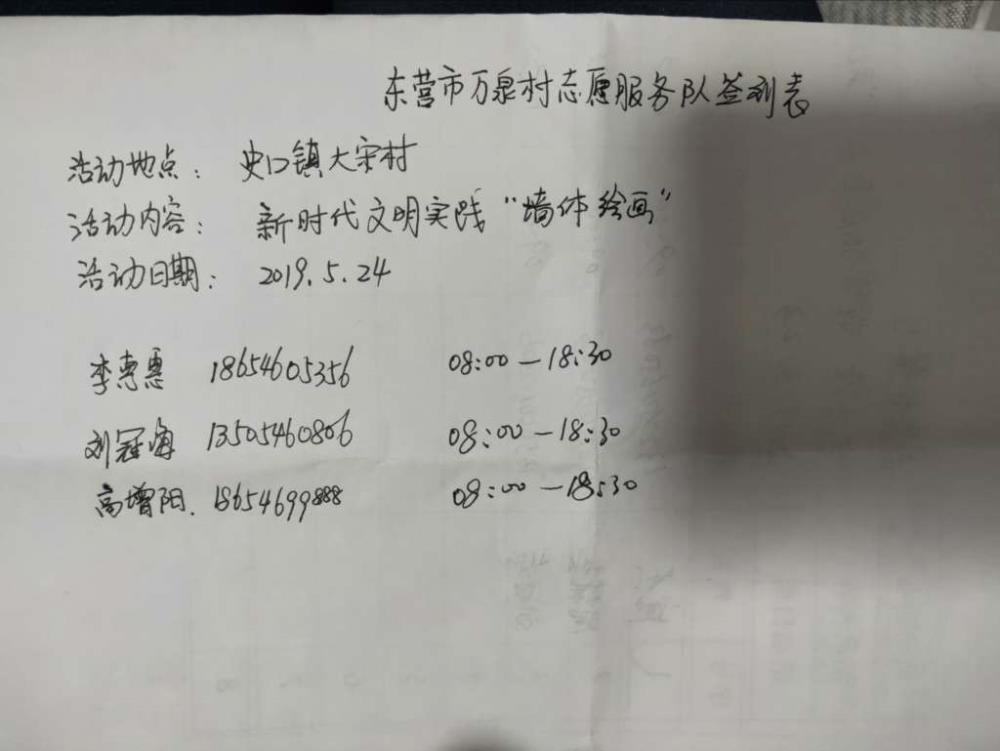 东营市万泉村志愿服务队签到表
活动地点: 史口镇大宋村
活动内容: 新时代文明实践“墙体绘画”
活动日期: 2019.5.24
李惠惠 18654605356 08:00-18:30
刘冠海 13505460806 08:00-18:30
高增阳. 18654699888 08:00-18:30